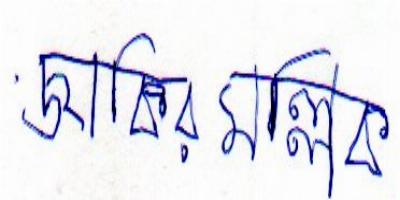 জাকির মল্লিক